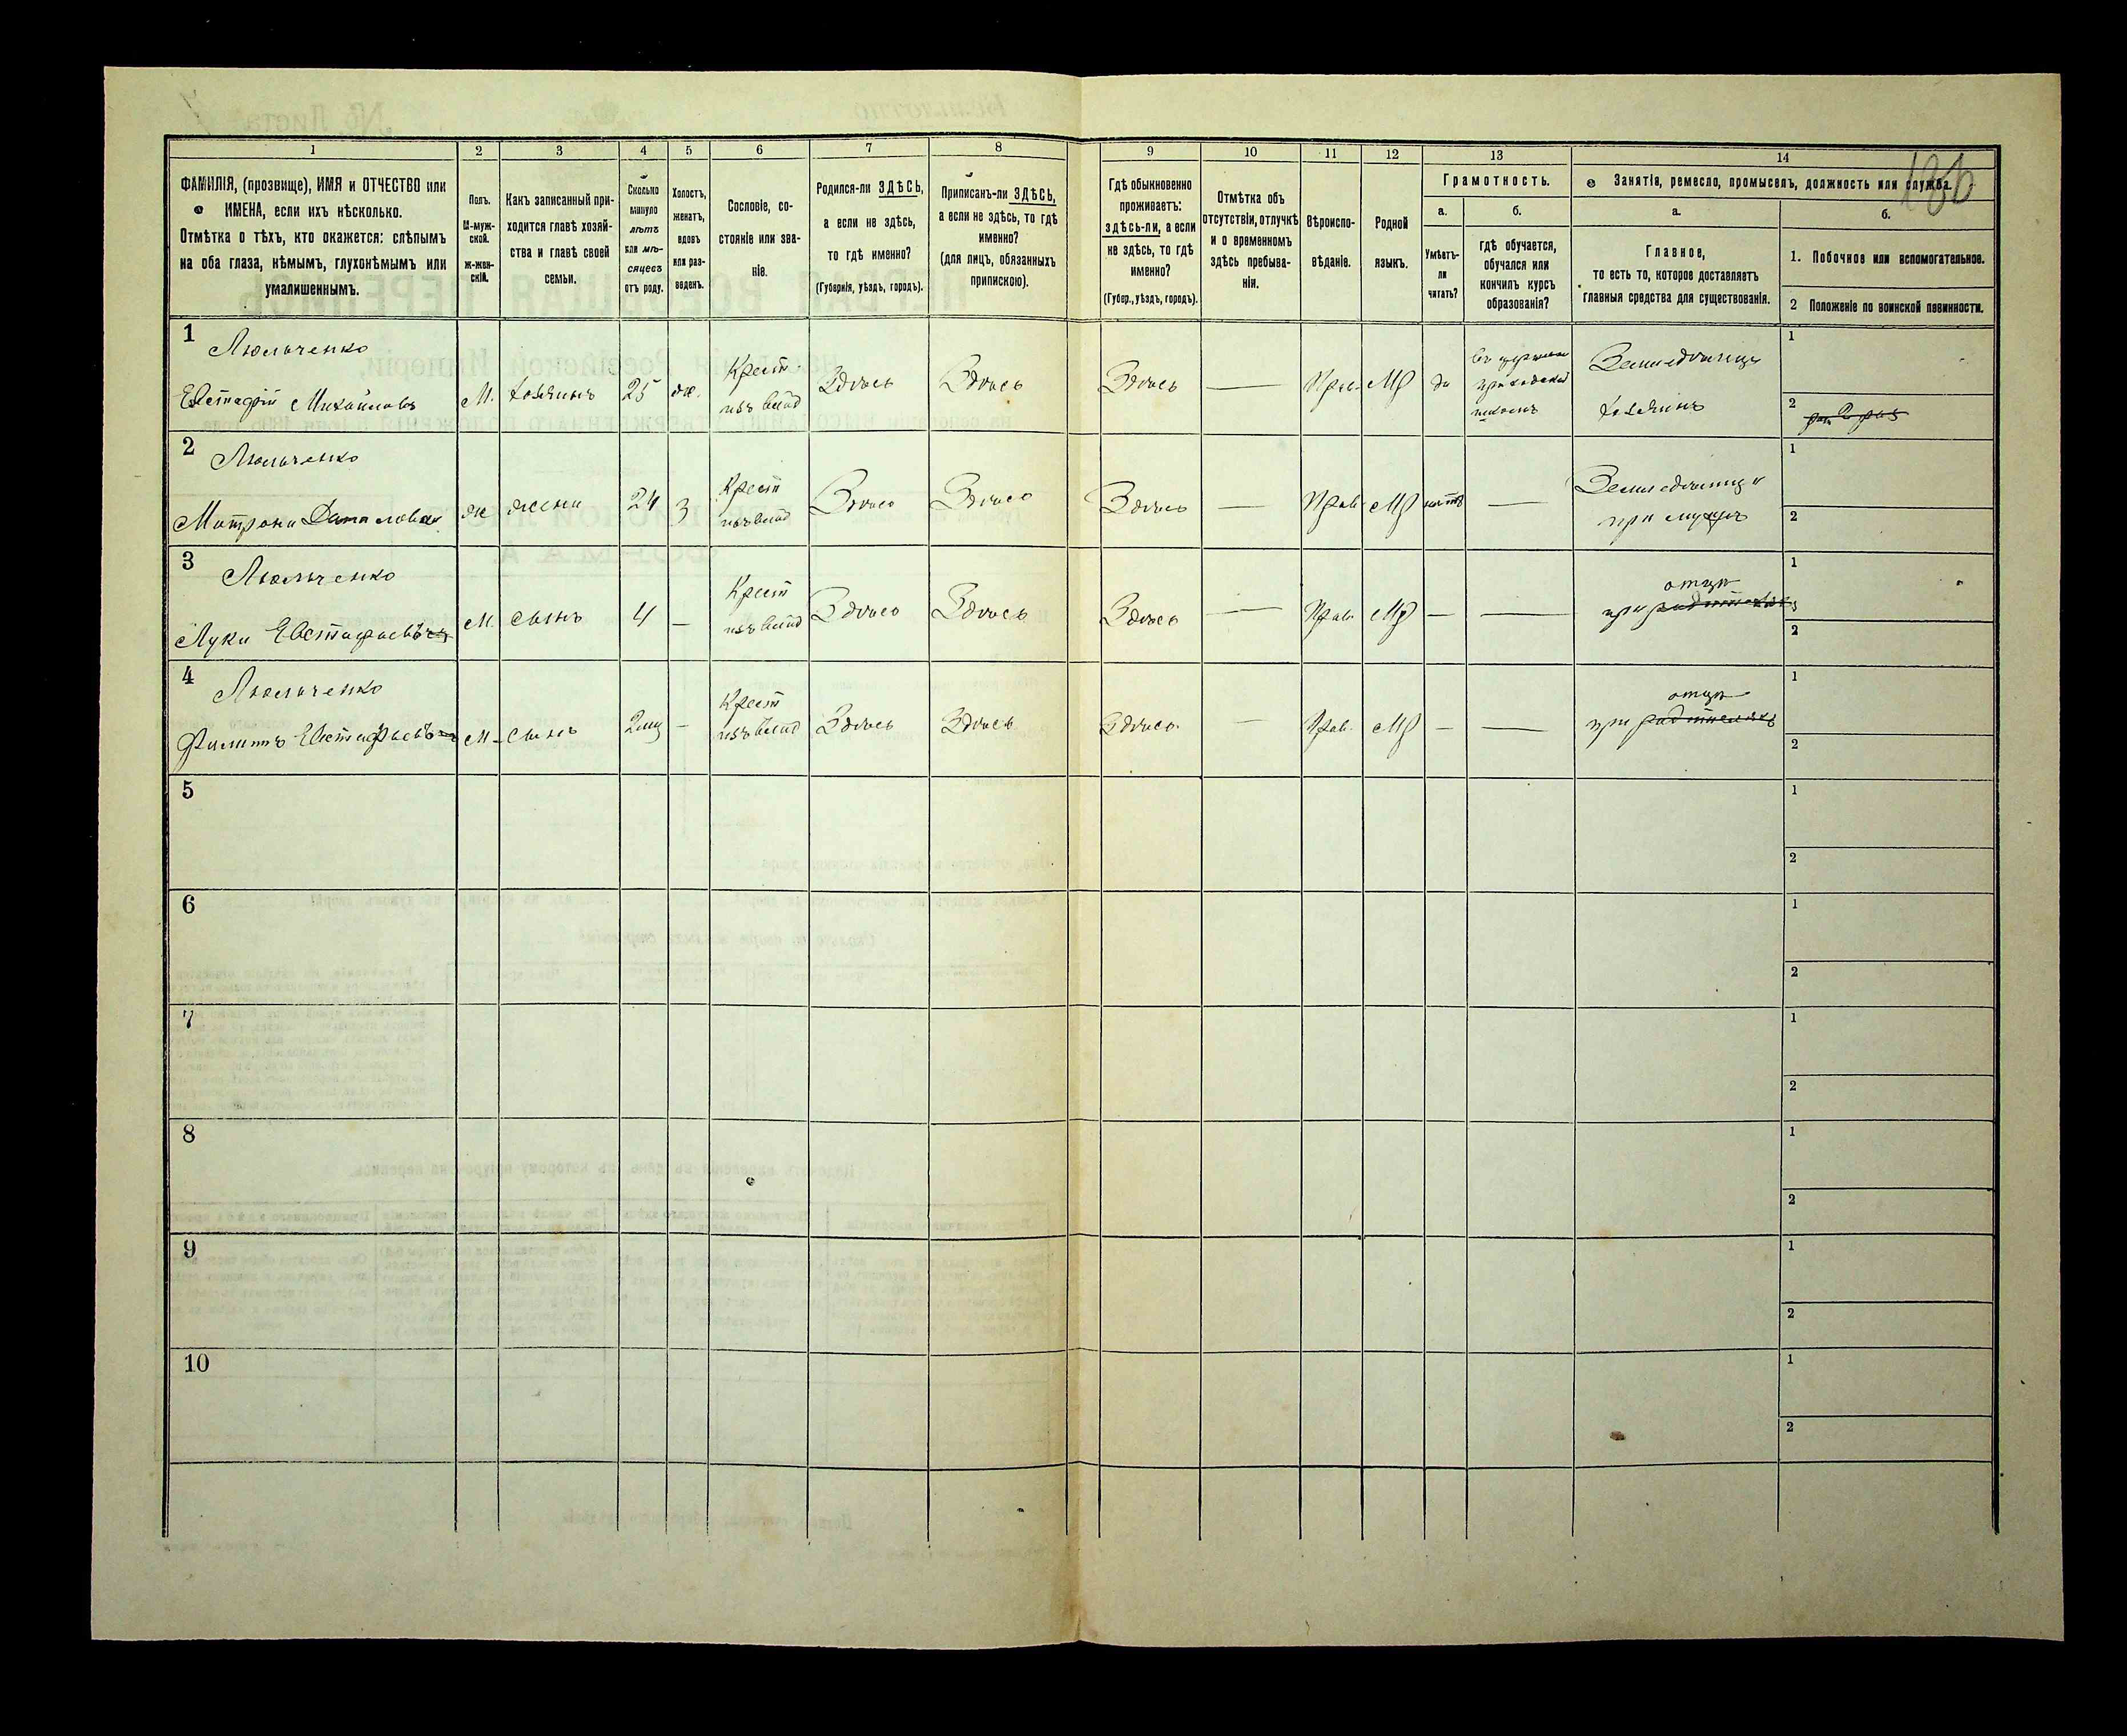 186
1
2
3
4
5
6
7
8
9
10
11
12
13
14
ФАМИЛІЯ, (прозвище), ИМЯ и ОТЧЕСТВО или
ИМЕНА, если ихъ нѣсколько.
Отмѣтка о тѣхъ, кто окажется: слѣпымъ
на оба глаза, нѣмымъ, глухонѣмымъ или
умалишеннымъ.
Полъ.
М-муж-
ской.
ж-жен-
скій.
Какъ записанный при-
ходится главѣ хозяй-
ства и главѣ своей
семьи.
Сколько
минуло
лѣтъ
или мѣ-
сяцевъ
отъ роду.
Холостъ,
женатъ,
вдовъ
или раз-
веденъ.
Сословіе, со-
стояніе или зва-
ніе.
Родился-ли ЗДѢСЬ,
а если не здѣсь,
то гдѣ именно?
(Губернія, уѣздъ, городъ).
Приписанъ-ли ЗДѢСЬ,
а если не здѣсь, то гдѣ
именно?
(для лицъ, обязанныхъ
припискою).
Гдѣ обыкновенно
проживаетъ:
здѣсь-ли, а если
не здѣсь, то гдѣ
именно?
(Губер., уѣздъ, городъ).
Отмѣтка объ
отсутствіи, отлучкѣ
и о временномъ
здѣсь пребыва-
ніи.
Вѣроиспо-
вѣданіе.
Родной
языкъ.
Грамотность.
а.
Умѣетъ-
ли
читать?
б.
гдѣ обучается,
обучался или
кончилъ курсъ
образованія?
Занятія, ремесло, промыселъ, должность или служба.
а.
Главное,
то есть то, которое доставляетъ
главныя средства для существованія.
б.
1. Побочное или вспомогательное.
2 Положеніе по воинской повинности.
1
Люльченко
Евстафій Михайловъ
М.
хозяинъ
25
ж.
Крест
изъ влад
Здѣсь
Здѣсь
Здѣсь
—
Прав.
Мр
да
въ церковно
приходской
школѣ
Земледѣлецъ
хозяинъ
1
2
2
Люльченко
Матрона Даниловна
ж
жена
24
З
Крест
изъ влад
Здѣсь
Здѣсь
Здѣсь
—
Прав.
Мр
нѣтъ
—
Земледѣлица
при мужѣ
1
2
3
Люльченко
Лука Евстафьевъ
М.
сынъ
4
—
Крест
изъ влад
Здѣсь
Здѣсь
Здѣсь
—
Прав.
Мр
—
—
отцѣ
при родителяхъ
1
2
4
Люльченко
Филиппъ Евстафьевъ
М
сынъ
2 мц
—
Крест
изъ влад
Здѣсь
Здѣсь
Здѣсь
—
Прав.
Мр
—
—
отцѣ
при родителяхъ
1
2
5
1
2
6
1
2
7
1
2
8
1
2
9
1
2
10
1
2